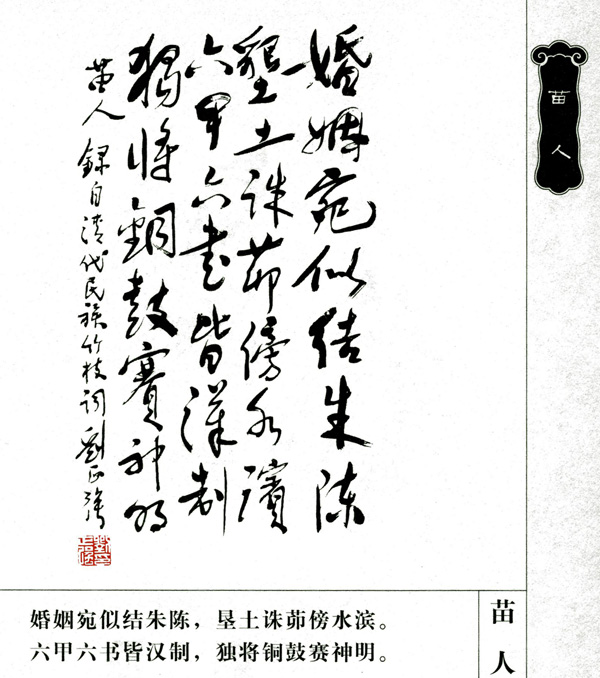 苗人
婚姻宛似结朱陳
墾土诛茆傍水濱
六甲六书皆漢制
獨將銅鼓賽神明
苗人 録自清代民族竹枝词 劉正强
婚姻宛似结朱陈，垦土诛茆傍水滨。
六甲六书皆汉制，独将铜鼓赛神明。
苗人